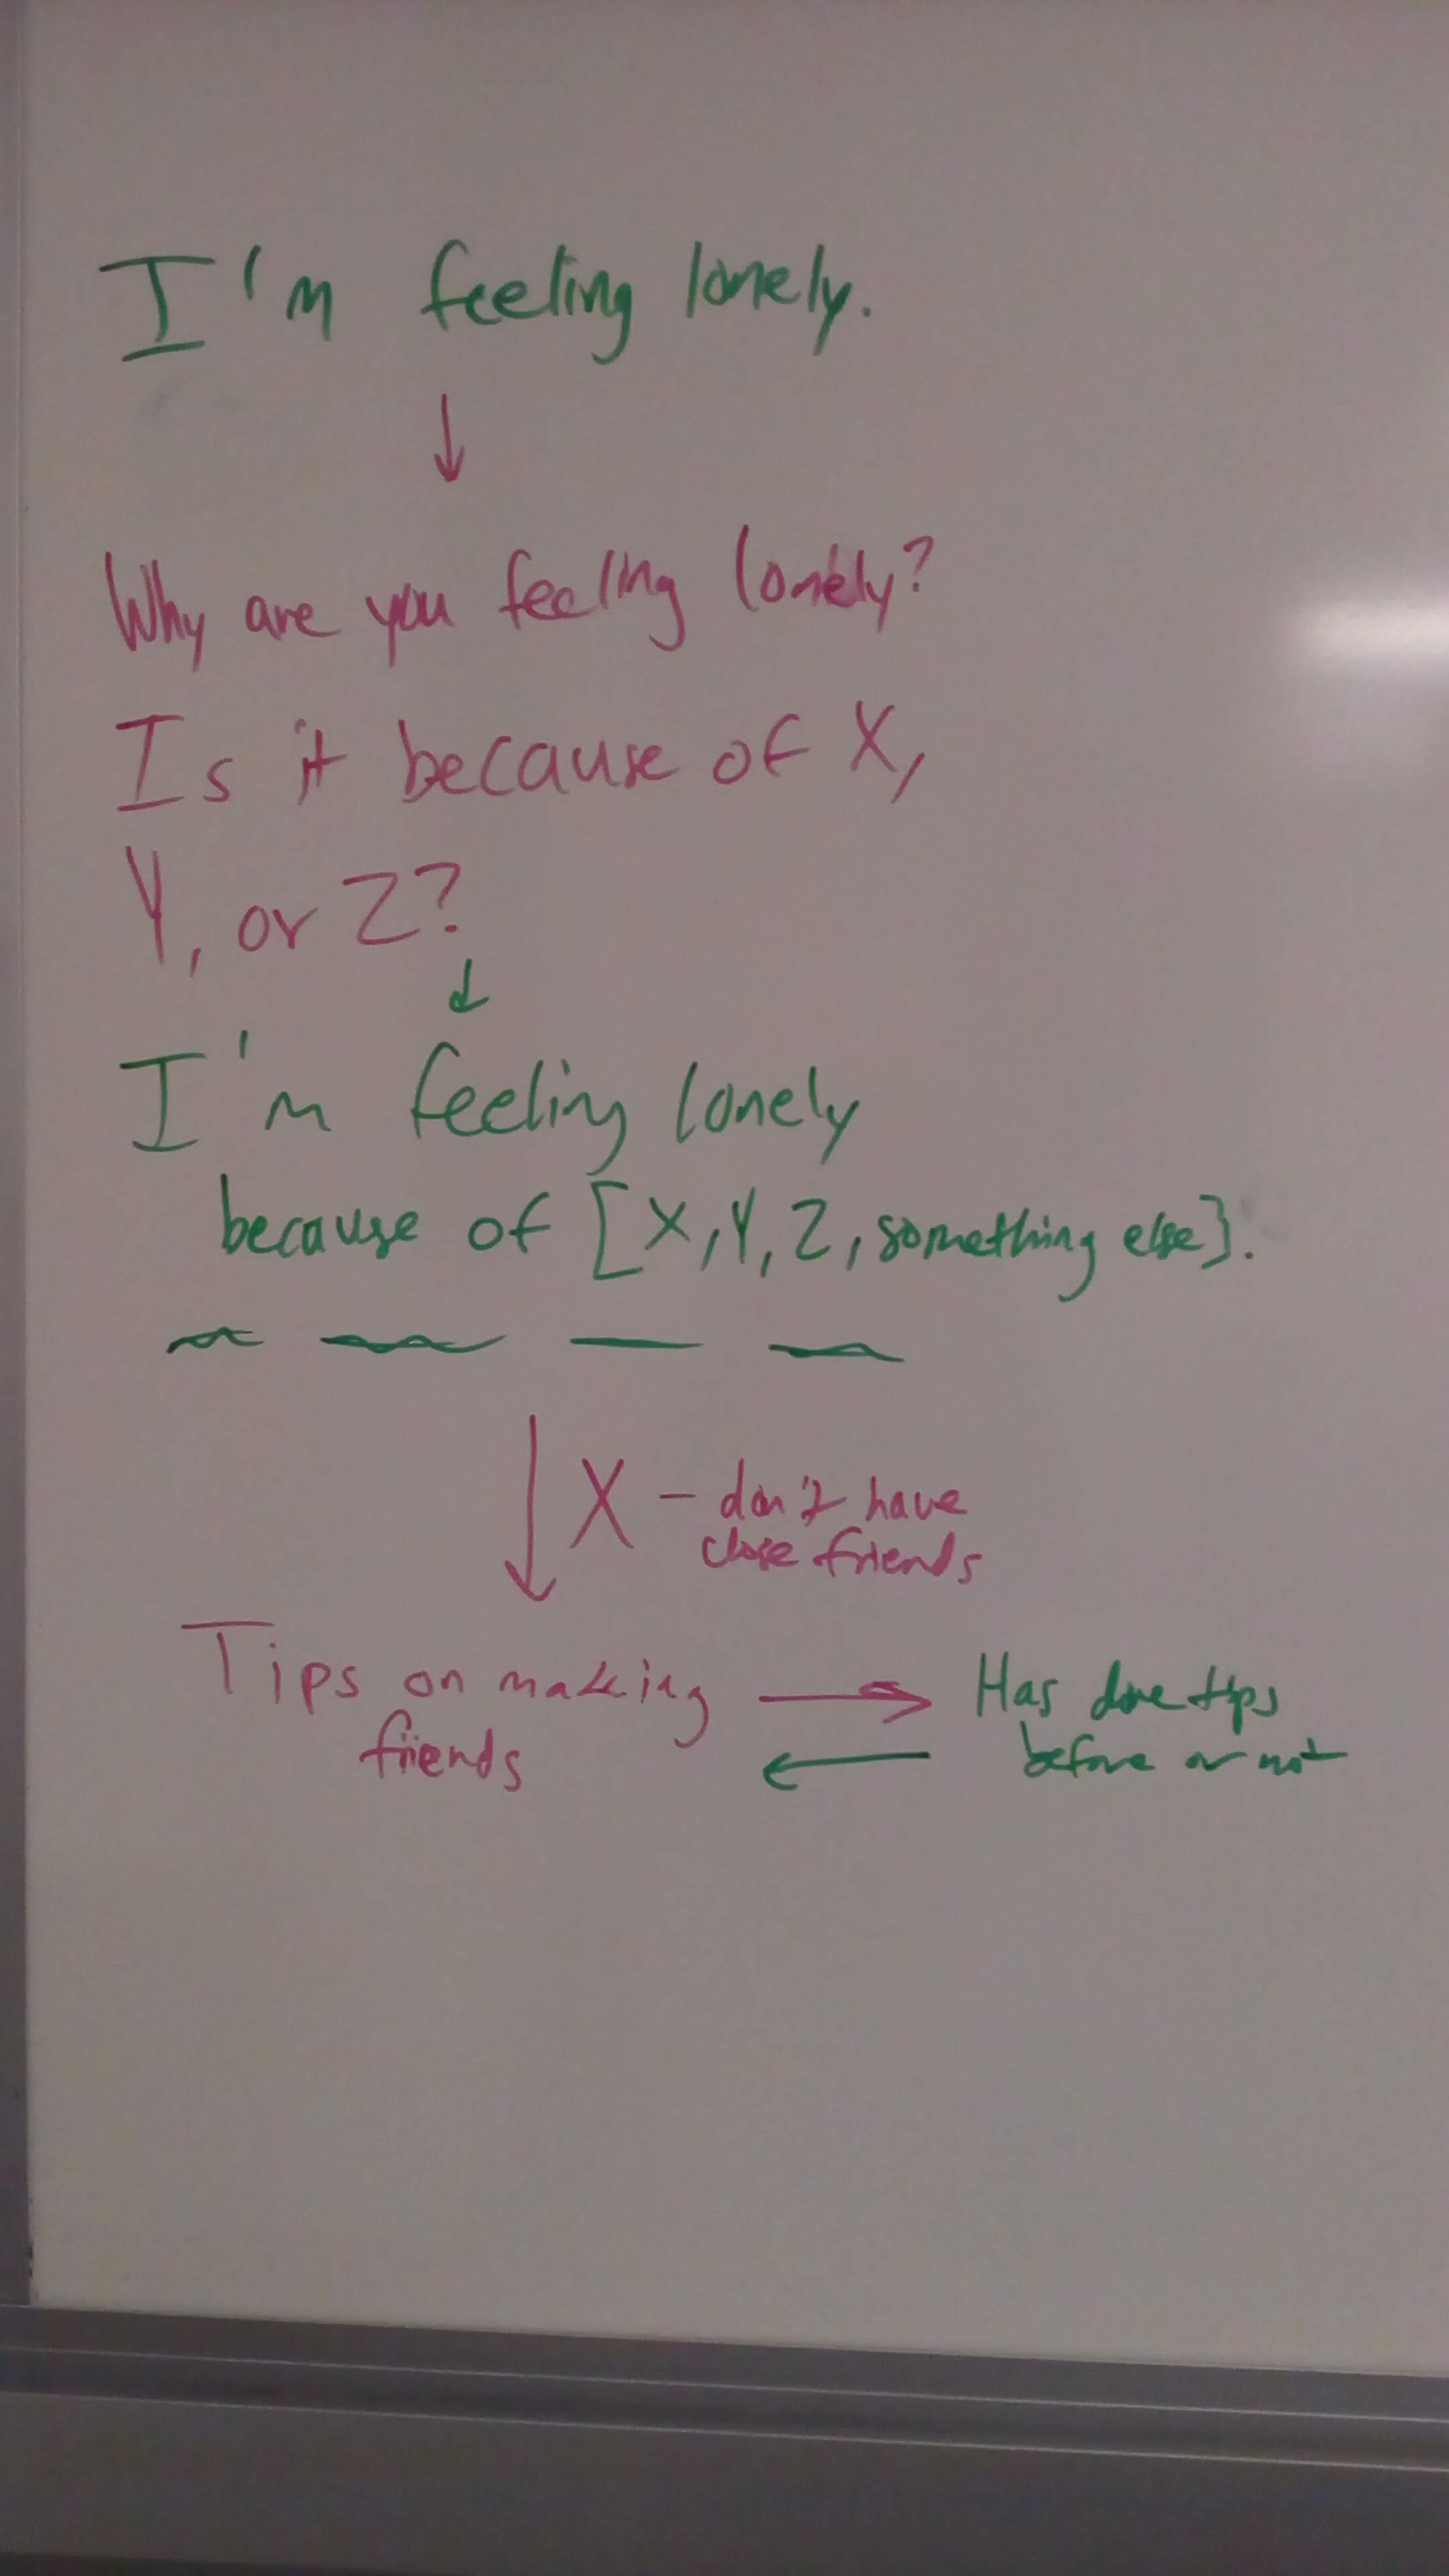 I'm feeling lonely.
Why are you feeling lonely?
Is it because of X,
Y, or Z?
I'm feeling lonely
because of [X, Y, Z, something else].
X - don't have
close friends
Tips on making
friends
Has done tips
before or not